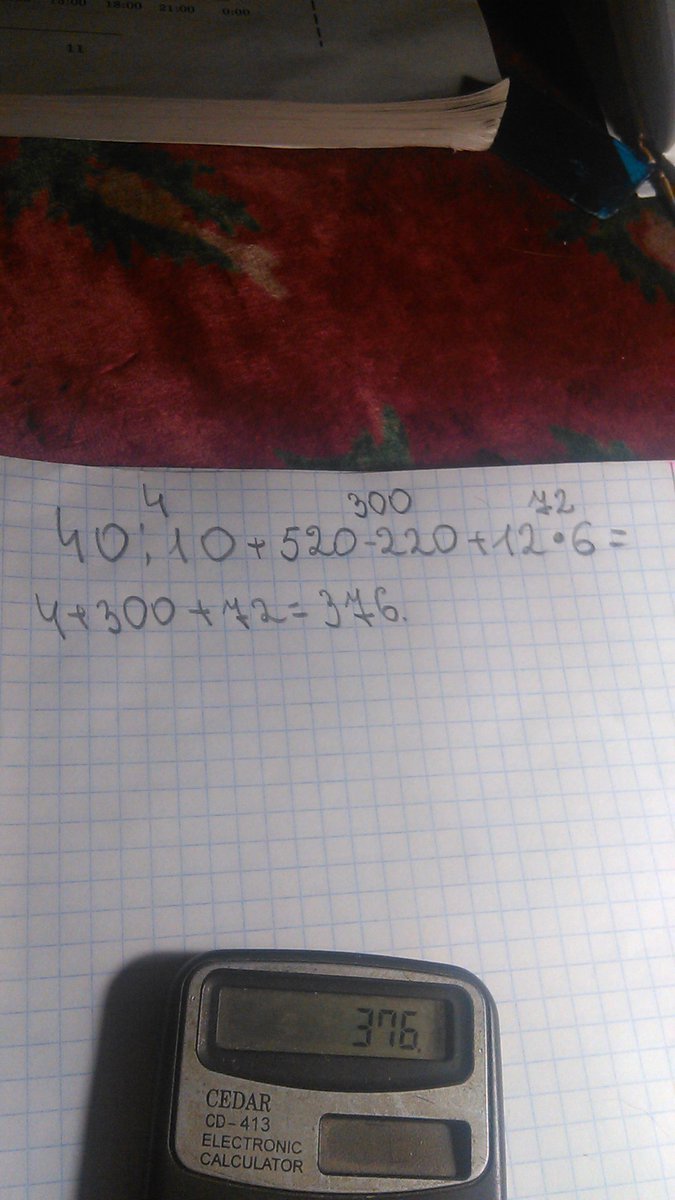 18:00 21:00 0:00
11
4 300 72
40:10+520-220+12•6=
4+300+72=376.
376.
CEDAR
CD-413
ELECTRONIC
CALCULATOR